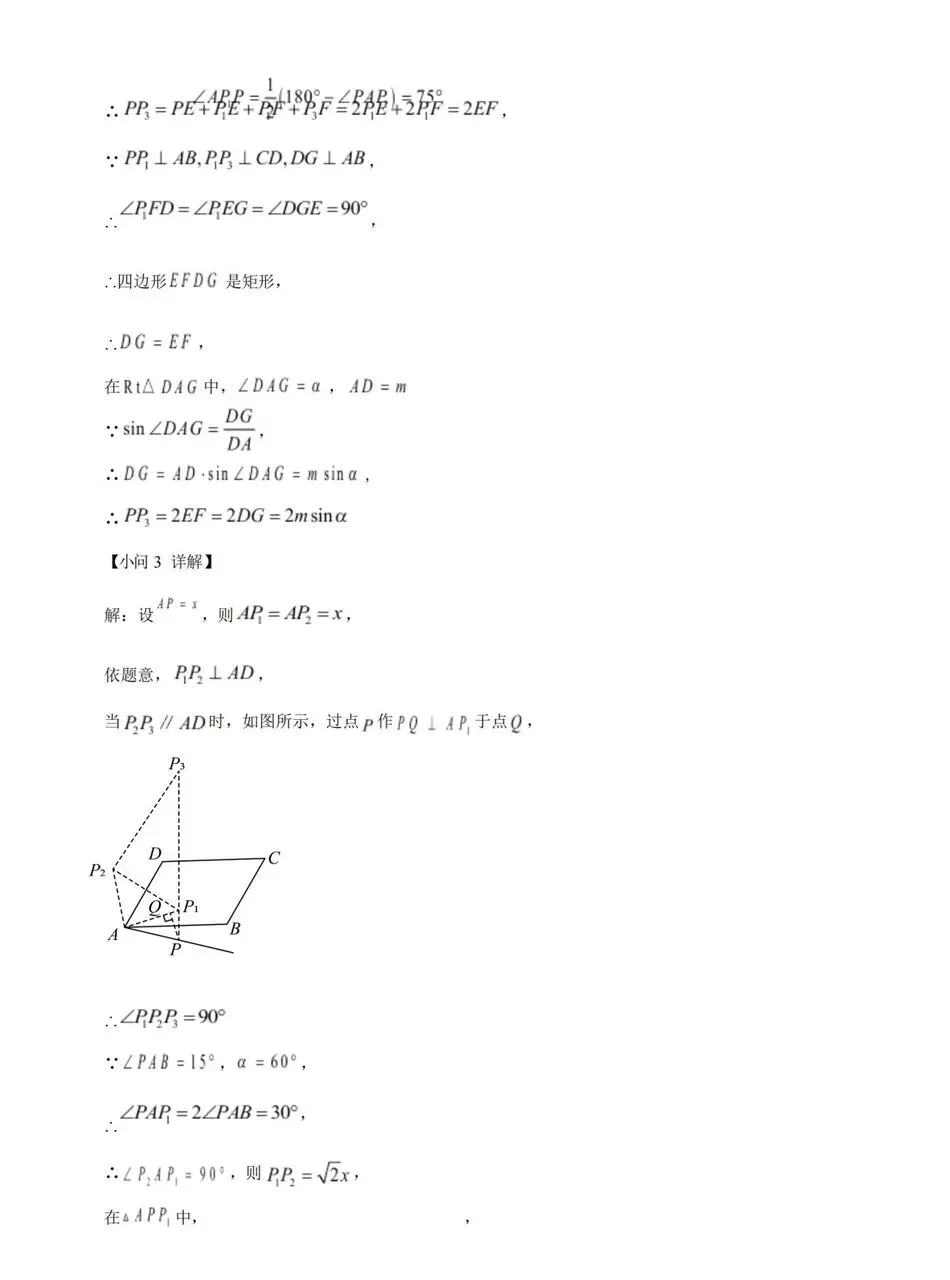 ∠AP₁P = 1/2(180° − ∠PAP₁) = 75°
∴ PP₃ = PE + P₁E + P₁F + P₃F = 2P₁E + 2P₁F = 2EF，
∵ PP₁ ⊥ AB, P₁P₃ ⊥ CD, DG ⊥ AB，
∴ ∠P₁FD = ∠P₁EG = ∠DGE = 90°，
∴四边形 EFDG 是矩形，
∴ DG = EF，
在 Rt△ DAG 中，∠DAG = α，AD = m
∵ sin ∠DAG = DG/DA，
∴ DG = AD · sin ∠DAG = m sin α，
∴ PP₃ = 2EF = 2DG = 2m sin α
【小问 3 详解】
解：设 AP = x，则 AP₁ = AP₂ = x，
依题意，P₁P₂ ⊥ AD，
当 P₂P₃ ∥ AD 时，如图所示，过点 P 作 PQ ⊥ AP₁ 于点 Q，
P₃
D
C
P₂
Q
P₁
A
B
P
∴ ∠P₁P₂P₃ = 90°
∵ ∠PAB = 15°，α = 60°，
∴ ∠PAP₁ = 2∠PAB = 30°，
∴ ∠P₂AP₁ = 90°，则 P₁P₂ = √2x，
在 △APP₁ 中，，